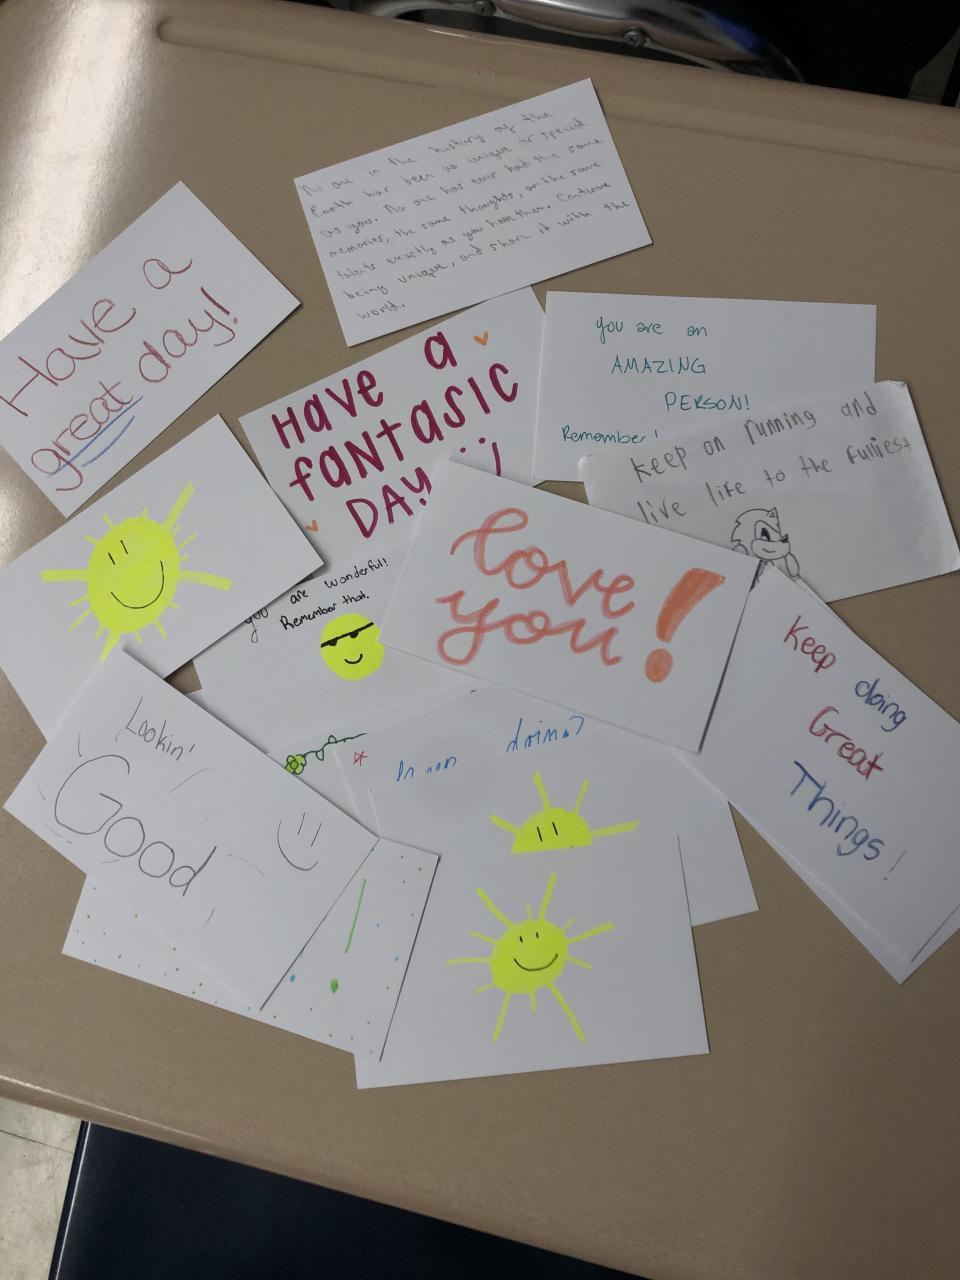 No one in the history of the
Earth has been as unique or special
as you. No one has ever had the same
memories, the same thoughts, or the same
talents exactly as you have them. Continue
being unique, and share it with the
world.
Have a
great day!
HAVE A
fANTASIC
DAY :)
you are an
AMAZING
PERSON!
Remember!
keep on running and
live life to the fulliest
you are wonderful!
Remember that.
love
you!
Keep doing
Great
Things!
Lookin'
Good